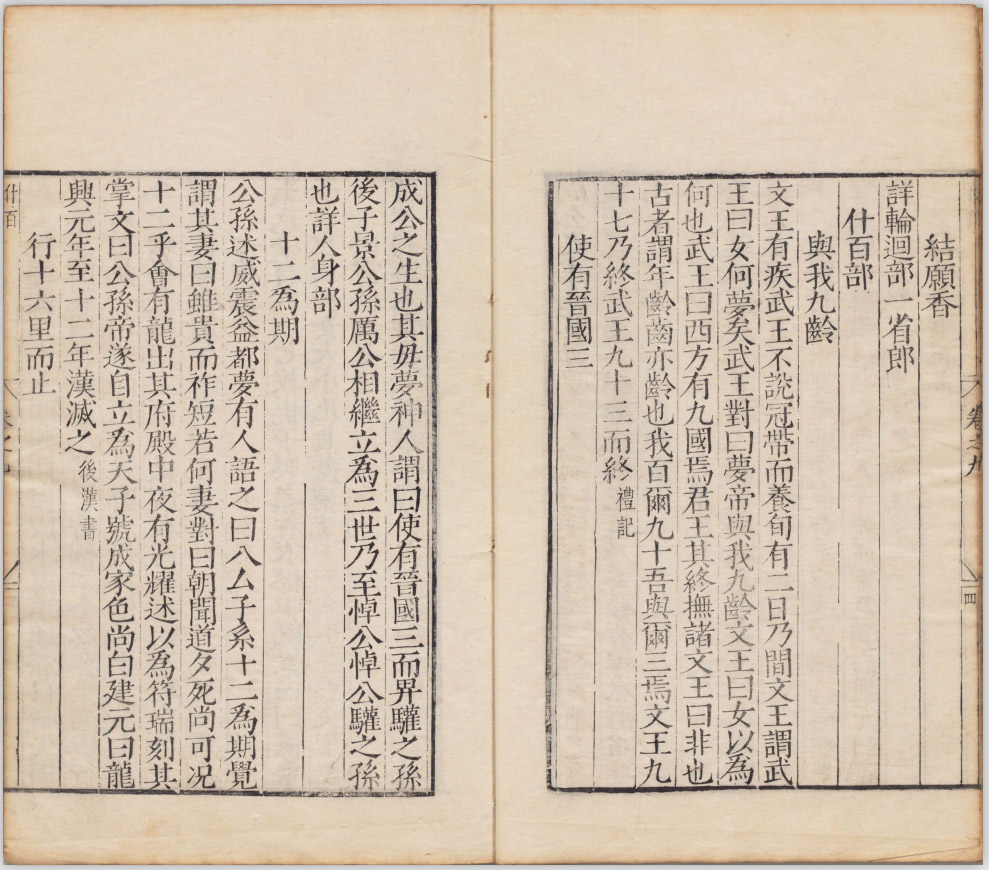 結願香
詳輪迴部一省郎
什百部
與我九齡
文王有疾武王不說冠帶而養旬有二日乃間文王謂武
王曰女何夢矣武王對曰夢帝與我九齡文王曰女以為
何也武王曰西方有九國焉君王其終撫諸文王曰非也
古者謂年齡齒亦齡也我百爾九十吾與爾三焉文王九
十七乃終武王九十三而終 禮記
使有晉國三
成公之生也其母夢神人謂曰使有晉國三而畀驩之孫
後子景公孫厲公相繼立為三世乃至悼公悼公驩之孫
也詳人身部
十二為期
公孫述威震益都夢有人語之曰八厶子系十二為期覺
謂其妻曰雖貴而祚短若何妻對曰朝聞道夕死尚可况
十二乎會有龍出其府殿中夜有光耀述以為符瑞刻其
掌文曰公孫帝遂自立為天子號成家色尚白建元曰龍
興元年至十二年漢滅之 後漢書
行十六里而止
什百
卷之九
四